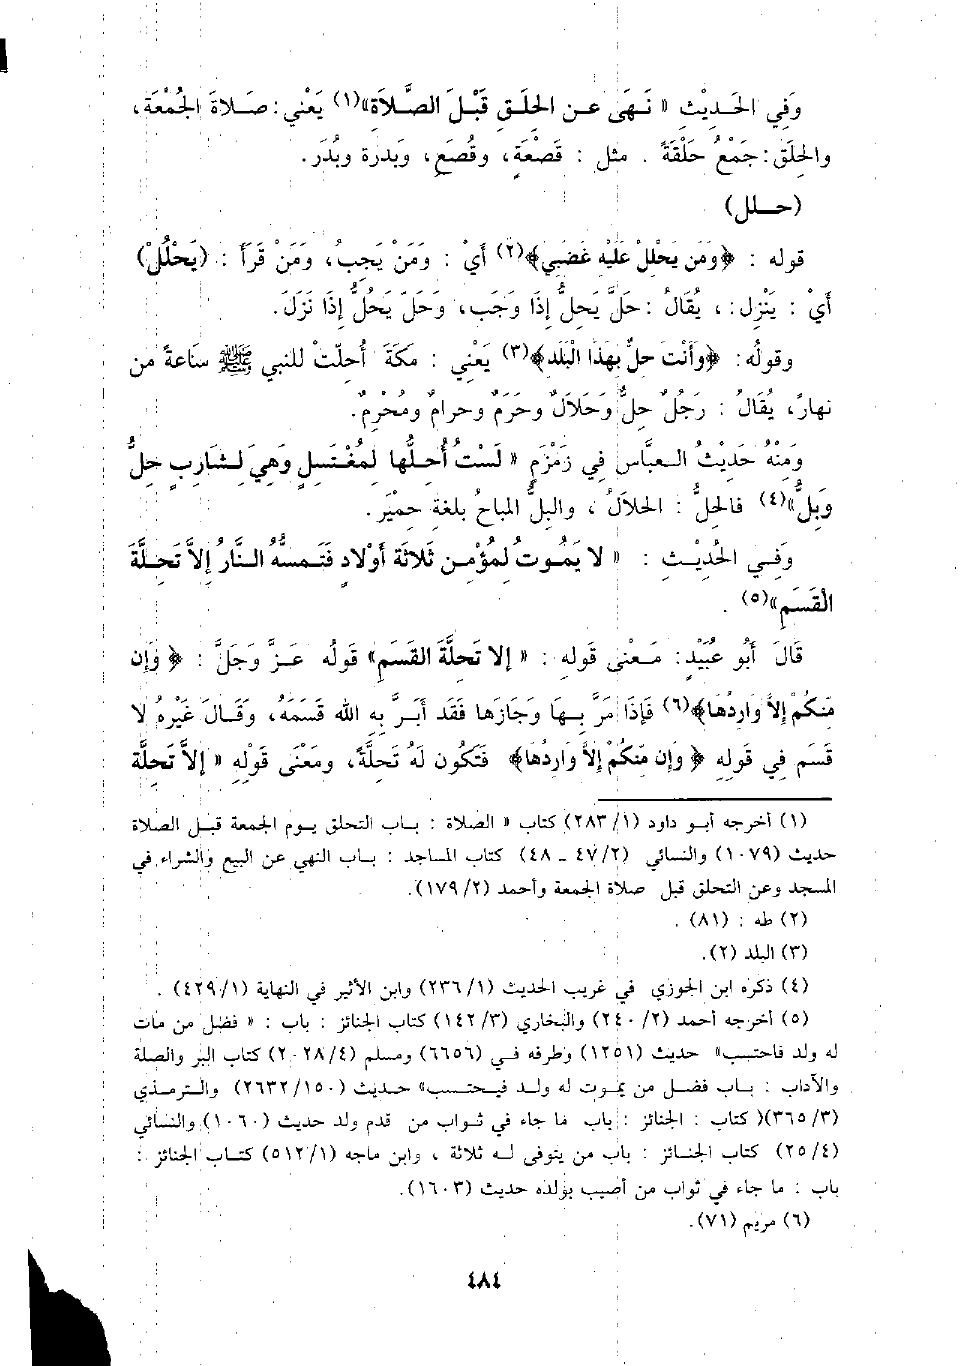 وَفِي الحَدِيْثِ « نَهَى عَنِ الحِلَقِ قَبْلَ الصَّلاَة»(١) يَعْنِي: صَلاَةَ الجُمْعَة،
والحِلَق: جَمْعُ حَلْقَةً . مثل : قَصْعَةٍ، وقُصَعٍ، وَبَدرة وبُدَر.
(حـلل)
قوله : ﴿وَمَن يَحْلِلْ عَلَيْهِ غَضَبِي﴾(٢) أَيْ : وَمَنْ يَجِبُ، وَمَنْ قَرَأَ : (يَحْلُلْ)
أَيْ : يَنْزِل: ، يُقَالُ: حَلَّ يَحِلُّ إِذَا وَجَب، وَحَلّ يَحُلُّ إِذَا نَزَلَ.
وقولُه: ﴿وَأَنْتَ حِلٌّ بِهَذَا الْبَلَدِ﴾(٣) يَعْنِي : مَكَةَ أُحِلّتْ للنبي ﷺ سَاعةً من
نهارً، يُقَالُ : رَجُلٌ حِلٌّ وَحَلالٌ وحَرَمٌ وحرامٌ ومُحْرِمٌ.
وَمِنْهُ حَدِيْثُ العبَّاسِ فِي زَمْزَمِ « لَسْتُ أُحِلُّها لِمُغْتَسِلٍ وَهِيَ لِشَارِبٍ حِلٌّ
وَبِلٌّ»(٤) فالحِلُّ : الحَلاَلُ ، والبِلُّ المباحُ بلغةِ حِمْيَر.
وَفِي الحُدِيْثِ : « لا يَمُوتُ لِمُؤْمِنٍ ثَلاثَة أَوْلادٍ فَتَمسهُّ النَّارُ إِلاَّ تَحِلَّةَ
الْقَسَمِ»(٥) .
قَالَ أَبُو عُبَيْدٍ: مَعْنَى قَولِهِ : « إِلا تَحِلَّةَ القَسَمِ» قولُه عَزَّ وَجَلَّ : ﴿ وَإِن
مِّنكُمْ إِلاَّ وَارِدُهَا﴾(٦) فَإِذَا مَرَّ بِهَا وَجَازَها فَقَد أَبَرَّ بِهِ الله قَسَمَهُ، وَقَالَ غَيْرهُ لا
قَسَم فِي قَولِهِ ﴿ وَإِن مِّنكُمْ إِلاَّ وَارِدُهَا﴾ فَتَكُون لَهُ تَحِلَّةً، ومَعْنَى قَوْلِهِ « إِلاَّ تَحِلَّةَ
(١) أخرجه أبو داود (٢٨٣/١) كتاب « الصلاة : باب التحلق يوم الجمعة قبل الصلاة
حديث (١٠٧٩) والنسائي (٤٧/٢ - ٤٨) كتاب المساجد : باب النهي عن البيع والشراء في
المسجد وعن التحلق قبل صلاة الجمعة وأحمد (١٧٩/٢).
(٢) طه : (٨١) .
(٣) البلد (٢).
(٤) ذكره ابن الجوزي في غريب الحديث (٢٣٦/١) وابن الأثير في النهاية (٤٢٩/١) .
(٥) أخرجه أحمد (٢٤٠/٢) والبخاري (١٤٢/٣) كتاب الجنائز : باب : « فضل من مات
له ولد فاحتسب» حديث (١٢٥١) وطرفه في (٦٦٥٦) ومسلم (٢٠٢٨/٤) كتاب البر والصلة
والآداب : باب فضل من يموت له ولد فيحتسب» حديث (٢٦٣٢/١٥٠) والترمذي
(٣٦٥/٣)( كتاب : الجنائز : باب ما جاء في ثواب من قدم ولد حديث (١٠٦٠) والنسائي
(٢٥/٤) كتاب الجنائز : باب من يتوفى له ثلاثة ، وابن ماجه (٥١٢/١) كتاب الجنائز :
باب : ما جاء في ثواب من أصيب بولده حديث (١٦٠٣).
(٦) مريم (٧١).
٤٨٤